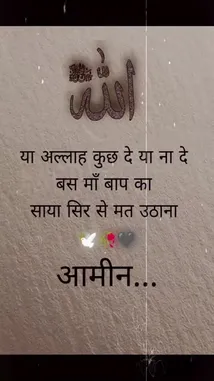 الله
या अल्लाह कुछ दे या ना दे
बस माँ बाप का
साया सिर से मत उठाना
🕊️🌹🖤
आमीन...